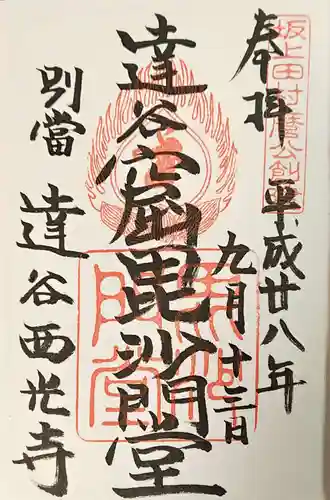 奉拝
坂上田村麿公創建
平成廿八年
九月十三日
達谷窟毘沙門堂
別當
達谷西光寺